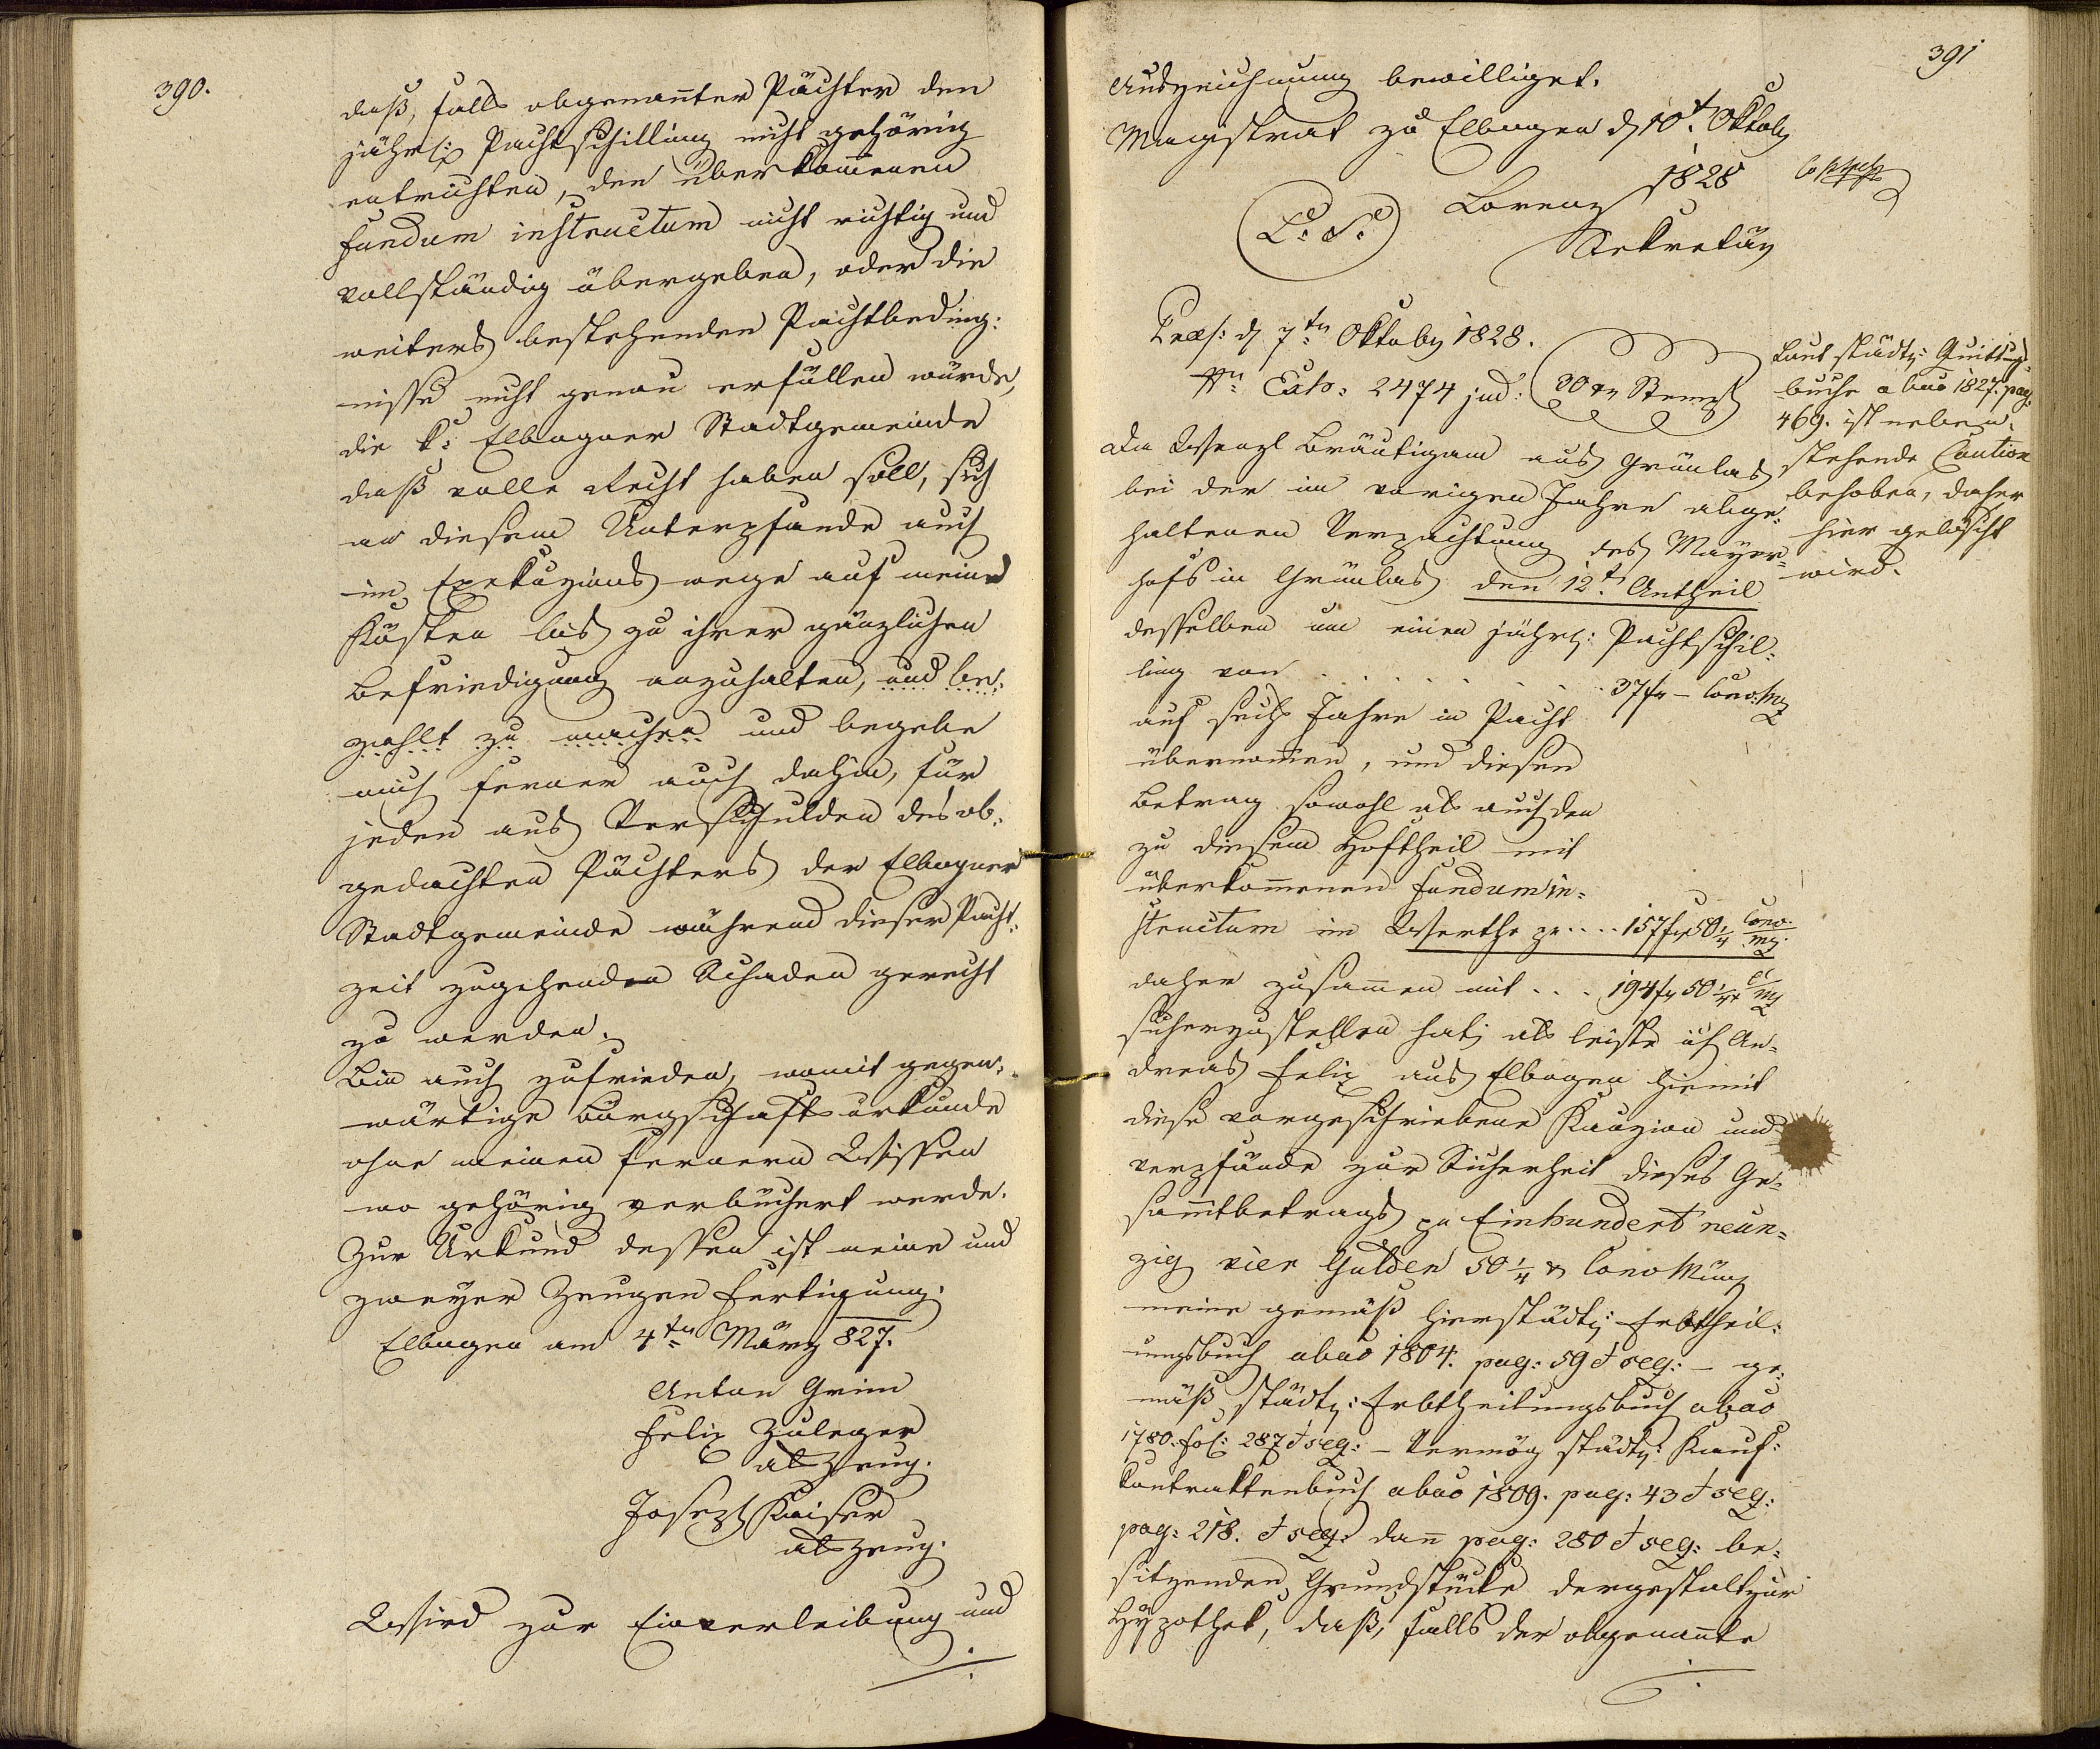 390.
daß, falls obgenan̄ter Pächter den
jährl: Pachtschilling nicht gehörig
entrichten, den überkom̄enen
fundum instructum nicht richtig und
vollständig übergeben, oder die
weiters bestehenden Pachtbeding:
nisse nicht genau erfüllen würde,
die k: Elbogner Stadtgemeinde
daß volle Recht haben soll, sich
an diesem Unterpfande auch
im Exekuzions wege auf meine
Kösten bis zu ihrer gänzlichen
Befriedigung anzuhalten, und be:
zahlt zu machen und begebe
mich ferner auch dahin, für
jeden aus Verschulden des ob:
gedachten Pächters der Elbogner
Stadtgemeinde während dieser Pacht:
zeit zugehenden Schaden gerecht
zu werden.
Bin auch zufrieden, womit gegen:
wärtige Bürgschafts urkunde
ohne meinen fernern Wissen
wo gehörig verbüchert werde.
Zur Urkund dessen ist meine und
zweyer Zeugen Fertigung.
Elbogen am 4tn März 827.
Anton Grim
Felix Zuleger
als Zeug.
Joseph Kaiser
als Zeug.
Wird zur Einverleibung und
391
Auszeichnung bewilliget.
Magistrat zu Elbogen d 10t Oktob
1828
L. S. Lorenz
Sekretär
Præs: d 7tn Oktob 1828.
Nr. Exh: 2474 jud: 30 xr Stemp
Da Wenzl Bräutigam aus Grünlas
bei der im vorigen Jahre abge:
haltenen Verpachtung des Mayer=
hofs in Grünlas den 12t Antheil
desselben um einen jährl: Pachtschil:
ling von . . . . . . 37 fr – Conv. Mz
auf sechs Jahre in Pacht
übernom̄en, und diesen
Betrag sowohl als auch den
zu diesem Hoftheil mit
überkom̄enen fundum in=
structum im Werthe pr .... 157 fr 50 1/4 Conv. mz.
daher zusam̄en mit ... 194 fr 50 1/4 x C Mz
sicherzustellen hat; als leiste ich An=
dreas Felix aus Elbogen hiemit
diese vorgeschriebene Kauzion und
verpfände zur Sicherheit dieses Ge=
sam̄tbetrags pr Einhundert neun=
zig vier Gulden 50 1/4 x Conv Münz
meine gemäß hierstädt: Erbtheil:
ungsbuch abao 1804. pag: 59 et seq: – ge:
mäß städt: Erbtheilungsbuch abao
1780. fol: 287 et seq: – Vermög städt: Kauf:
kontraktenbuch abao 1809. pag: 43 et seq:
pag: 218. et seq: dan̄ pag: 280 et seq: be:
sitzenden Grundstücke dergestalt zur
Hypothek, daß, falls der obgenan̄te
Laut städt: Quittungs=
buche abao 1827. pag.
469. ist neben:
stehende Caution
behoben, daher
hier gelöscht
wird.